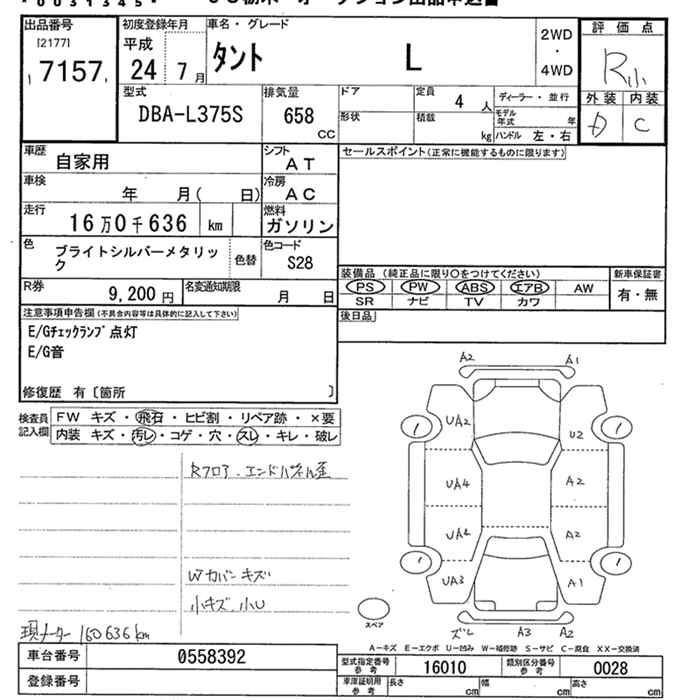 ・0031345・ オークション出品申込■
出品番号 初度登録年月 車名・グレード 評価点
[2177] 平成 2WD
7157 24年 7月 タント L ・ R小
4WD
外装 内装
型式 排気量 ドア 定員 ディーラー・並行
DBA-L375S 658 4人 モデル年式 年 D C
cc 形状 積載 kg ハンドル 左・右
車歴 自家用 シフト AT セールスポイント(正常に機能するものに限ります)
車検 年 月( 日) 冷房 AC
走行 16万0千636 km 燃料 ガソリン
色 ブライトシルバーメタリック 色替 色コード S28
装備品(純正品に限り○をつけてください) 新車保証書
R券 9,200円 名変通知期限 月 日 PS PW ABS エアB AW 有・無
SR ナビ TV カワ
注意事項申告欄(不具合内容等は具体的に記入して下さい) 後日品
E/Gチェックランプ点灯
E/G音
修復歴 有〔箇所 〕
検査員記入欄 FW キズ・飛石・ヒビ割・リペア跡・×要
内装 キズ・汚レ・コゲ・穴・スレ・キレ・破レ
Rフロア.エンドパネル歪
Wカバーキズ
小キズ.小U
現メーター160636km
A2 A1
UA2 U2
1 1
UA4 A2
UA2 A2
1 1
UA3 A1
ズレ A3 A2
スペア
A-キズ E-エクボ U-凹み W-補修跡 S-サビ C-腐食 XX-交換済
車台番号 0558392 型式指定番号 参考 16010 類別区分番号 参考 0028
登録番号 車庫証明用 参考 長さ cm 幅 cm 高さ cm